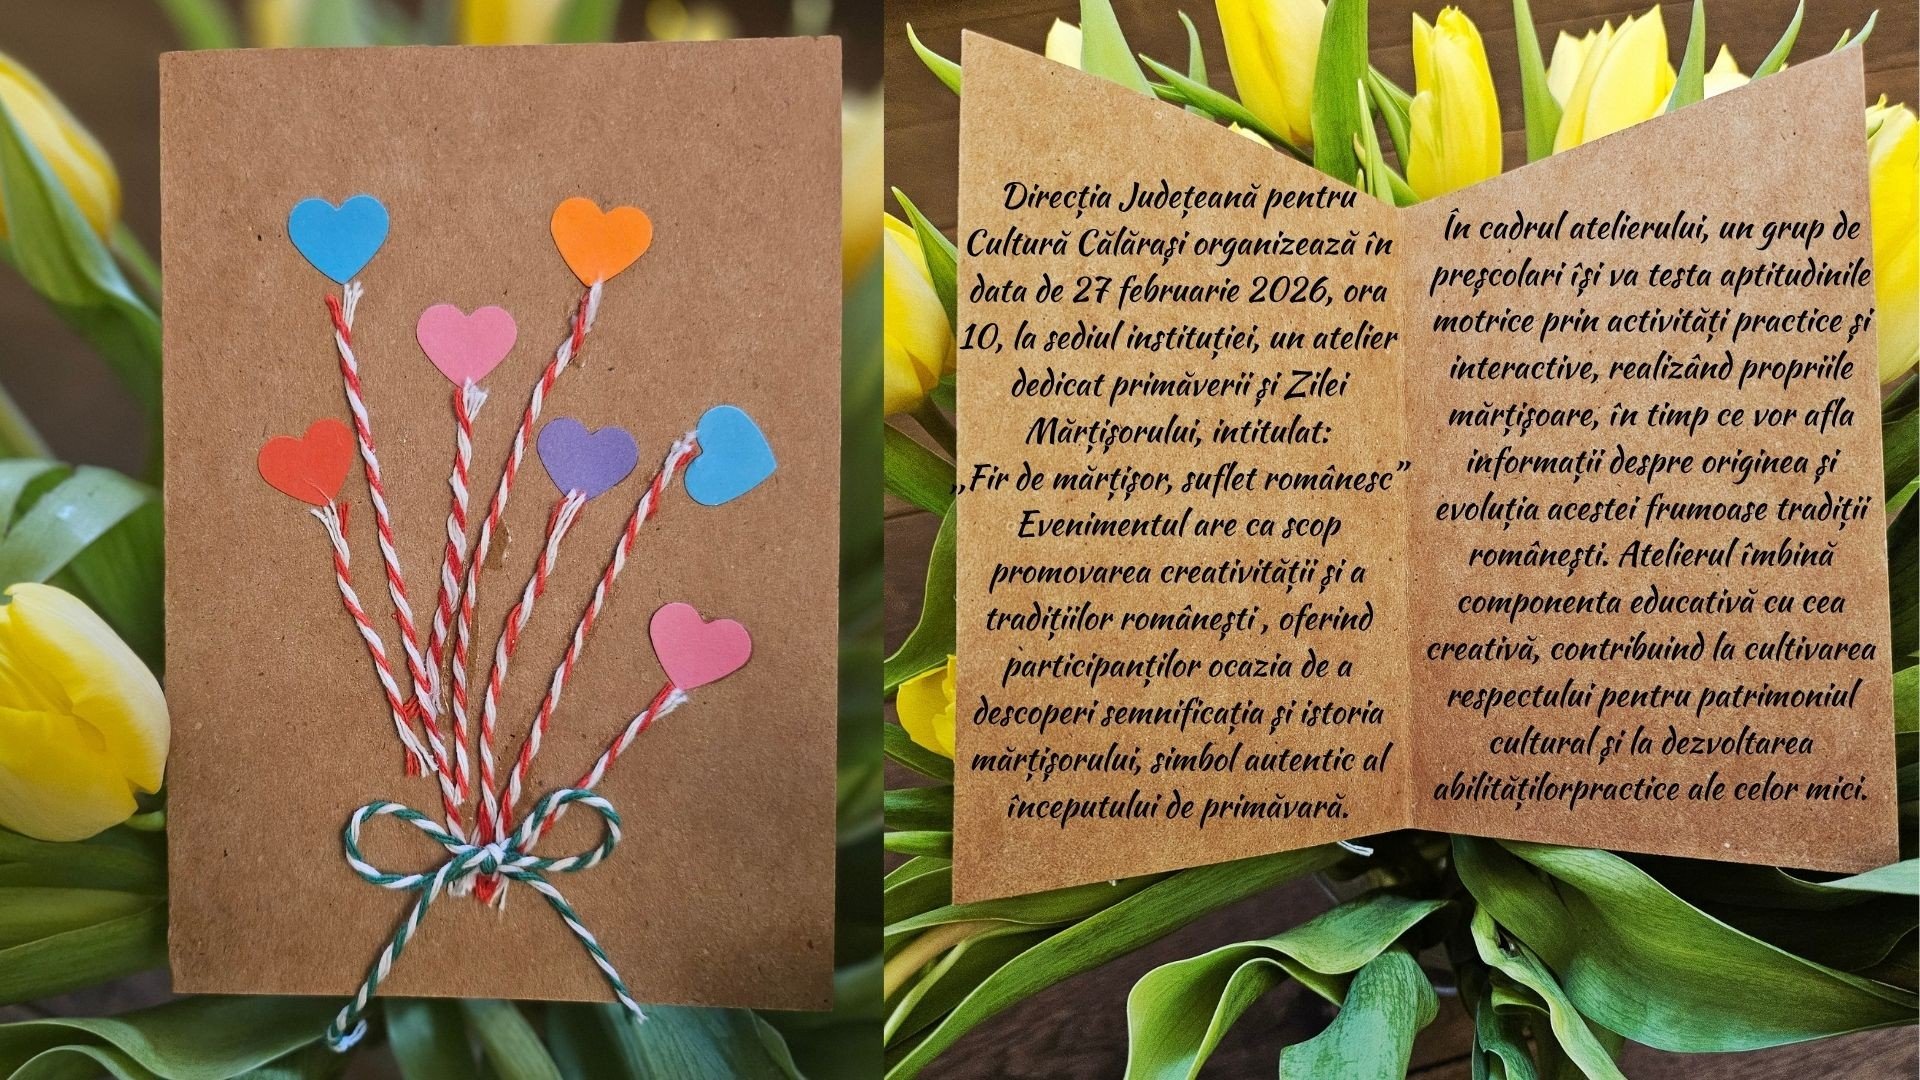 Direcția Județeană pentru
Cultură Călărași organizează în
data de 27 februarie 2026, ora
10, la sediul instituției, un atelier
dedicat primăverii și Zilei
Mărțișorului, intitulat:
„Fir de mărțișor, suflet românesc”
Evenimentul are ca scop
promovarea creativității și a
tradițiilor românești , oferind
participanților ocazia de a
descoperi semnificația și istoria
mărțișorului, simbol autentic al
începutului de primăvară.
În cadrul atelierului, un grup de
preșcolari își va testa aptitudinile
motrice prin activități practice și
interactive, realizând propriile
mărțișoare, în timp ce vor afla
informații despre originea și
evoluția acestei frumoase tradiții
românești. Atelierul îmbină
componenta educativă cu cea
creativă, contribuind la cultivarea
respectului pentru patrimoniul
cultural și la dezvoltarea
abilitățilorpractice ale celor mici.